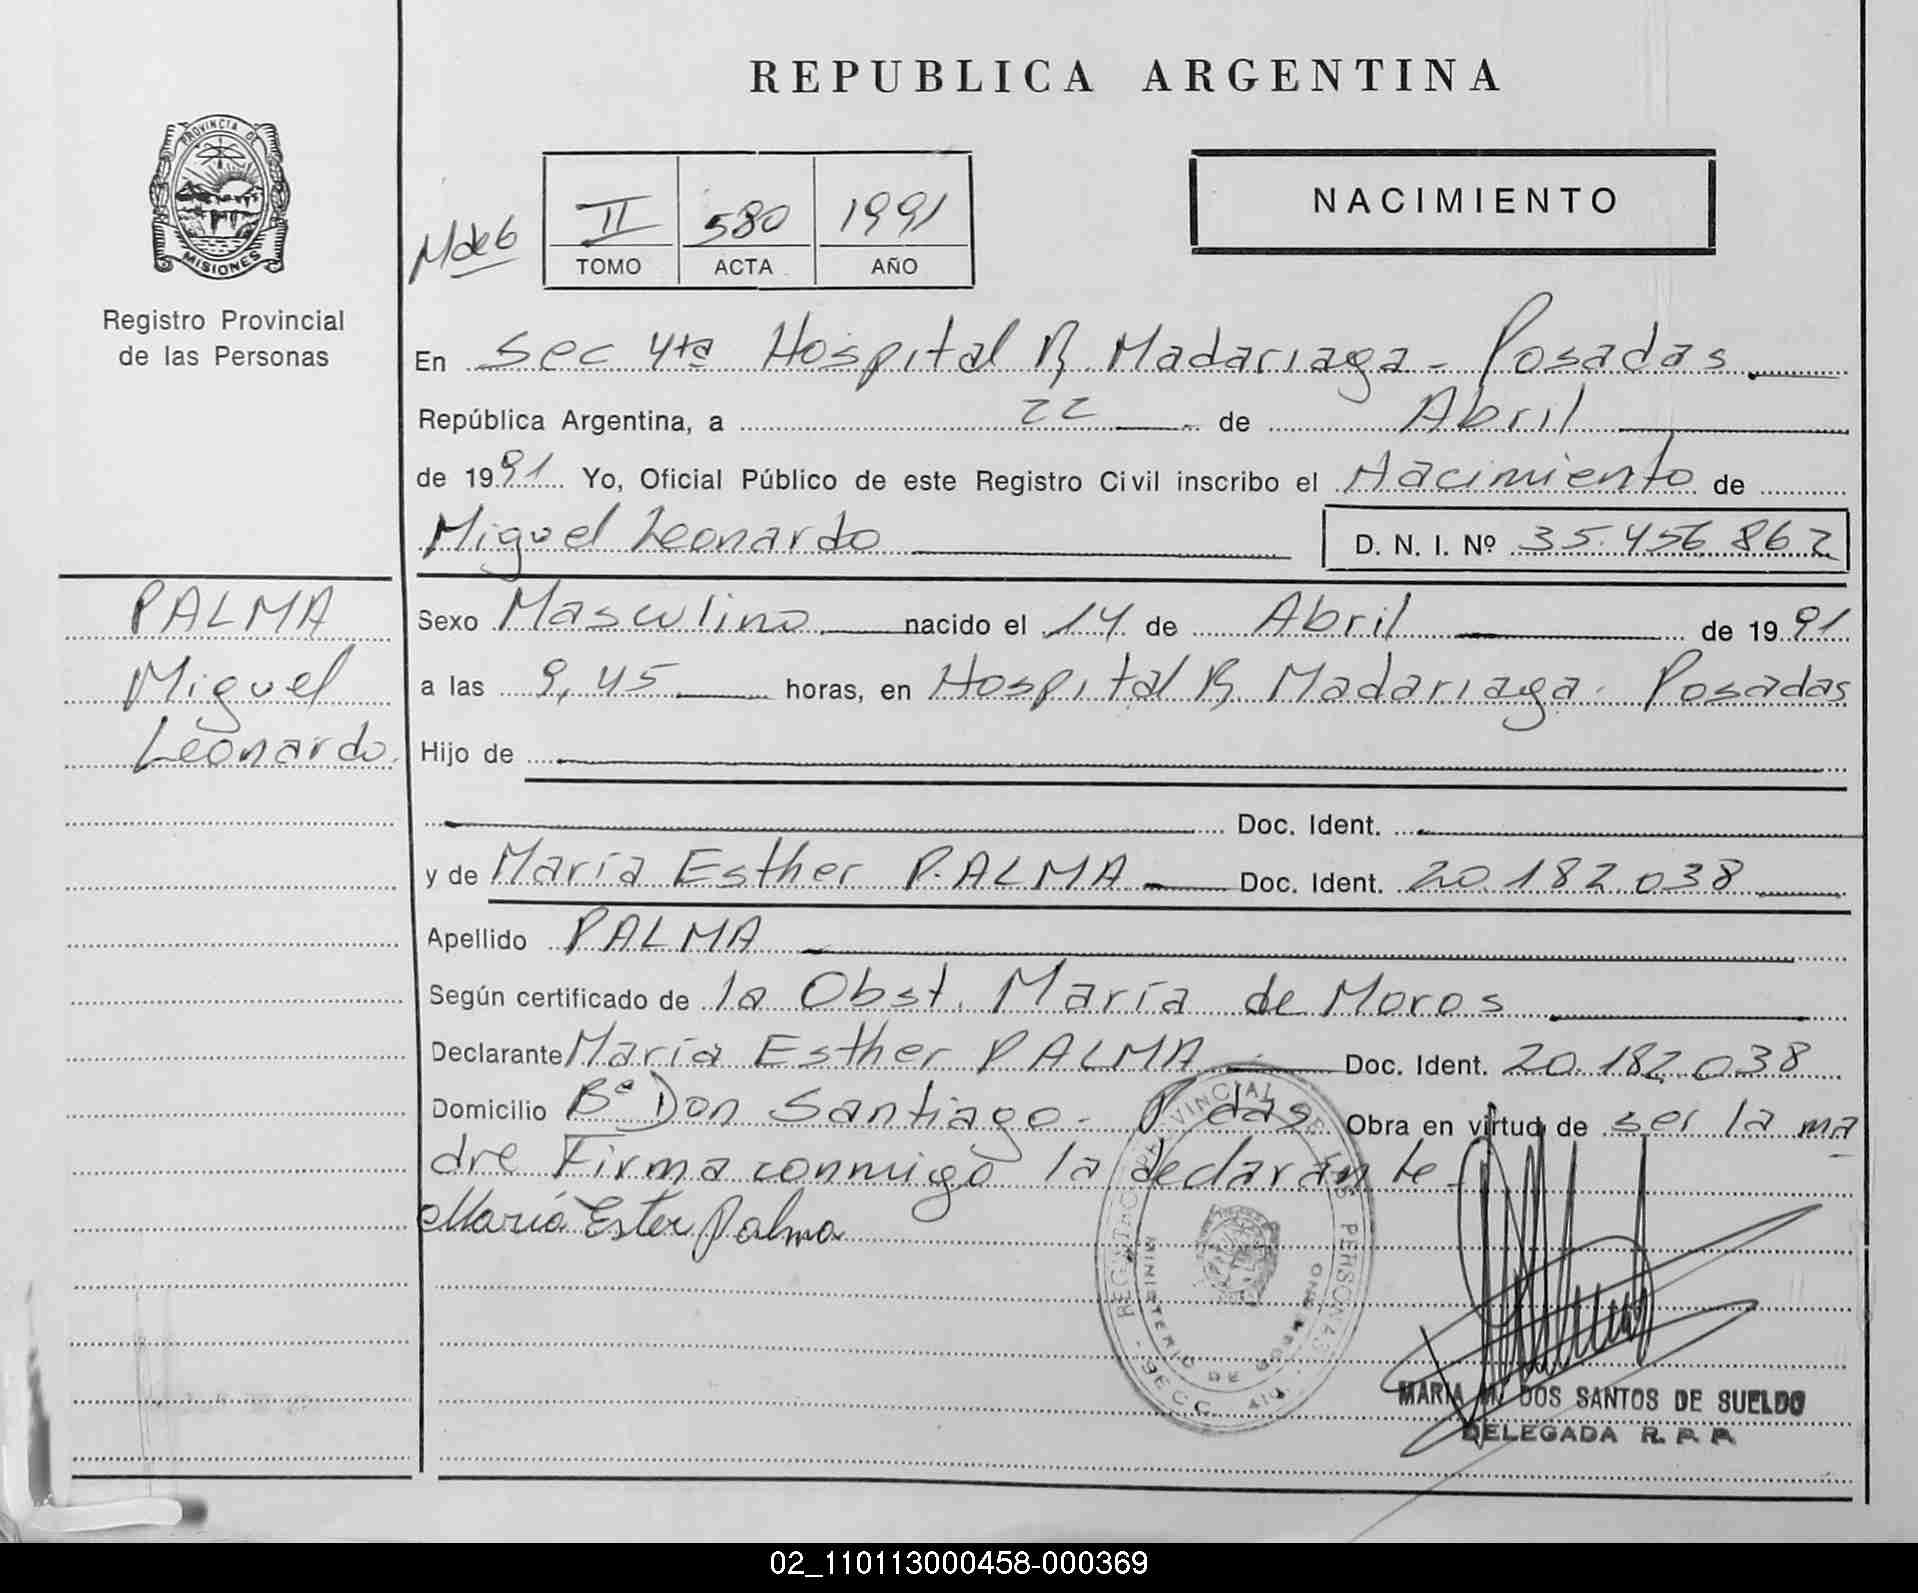 REPUBLICA ARGENTINA
PROVINCIA DE
MISIONES
Registro Provincial
de las Personas
NACIMIENTO
II 580 1991
TOMO ACTA AÑO
En Sec 4ta Hospital R. Madariaga - Posadas
República Argentina, a 22 de Abril
de 1991 Yo, Oficial Público de este Registro Civil inscribo el Nacimiento de
Miguel Leonardo D. N. I. Nº 35.456.862
PALMA
Miguel
Leonardo.
Sexo Masculino nacido el 14 de Abril de 1991
a las 9,45 horas, en Hospital R. Madariaga. Posadas
Hijo de
Doc. Ident.
y de María Esther PALMA Doc. Ident. 20.182.038
Apellido PALMA
Según certificado de la Obst. María de Moros
Declarante María Esther PALMA Doc. Ident. 20.182.038
Domicilio Bº Don Santiago - P das Obra en virtud de ser la ma
dre Firma conmigo la declarante -
María Ester Palma
REGISTRO PROVINCIAL DE LAS PERSONAS
MINISTERIO DE GOBIERNO
SECC. 4ta.
MARIA M. DOS SANTOS DE SUELDO
DELEGADA R. P. P.
02_110113000458-000369